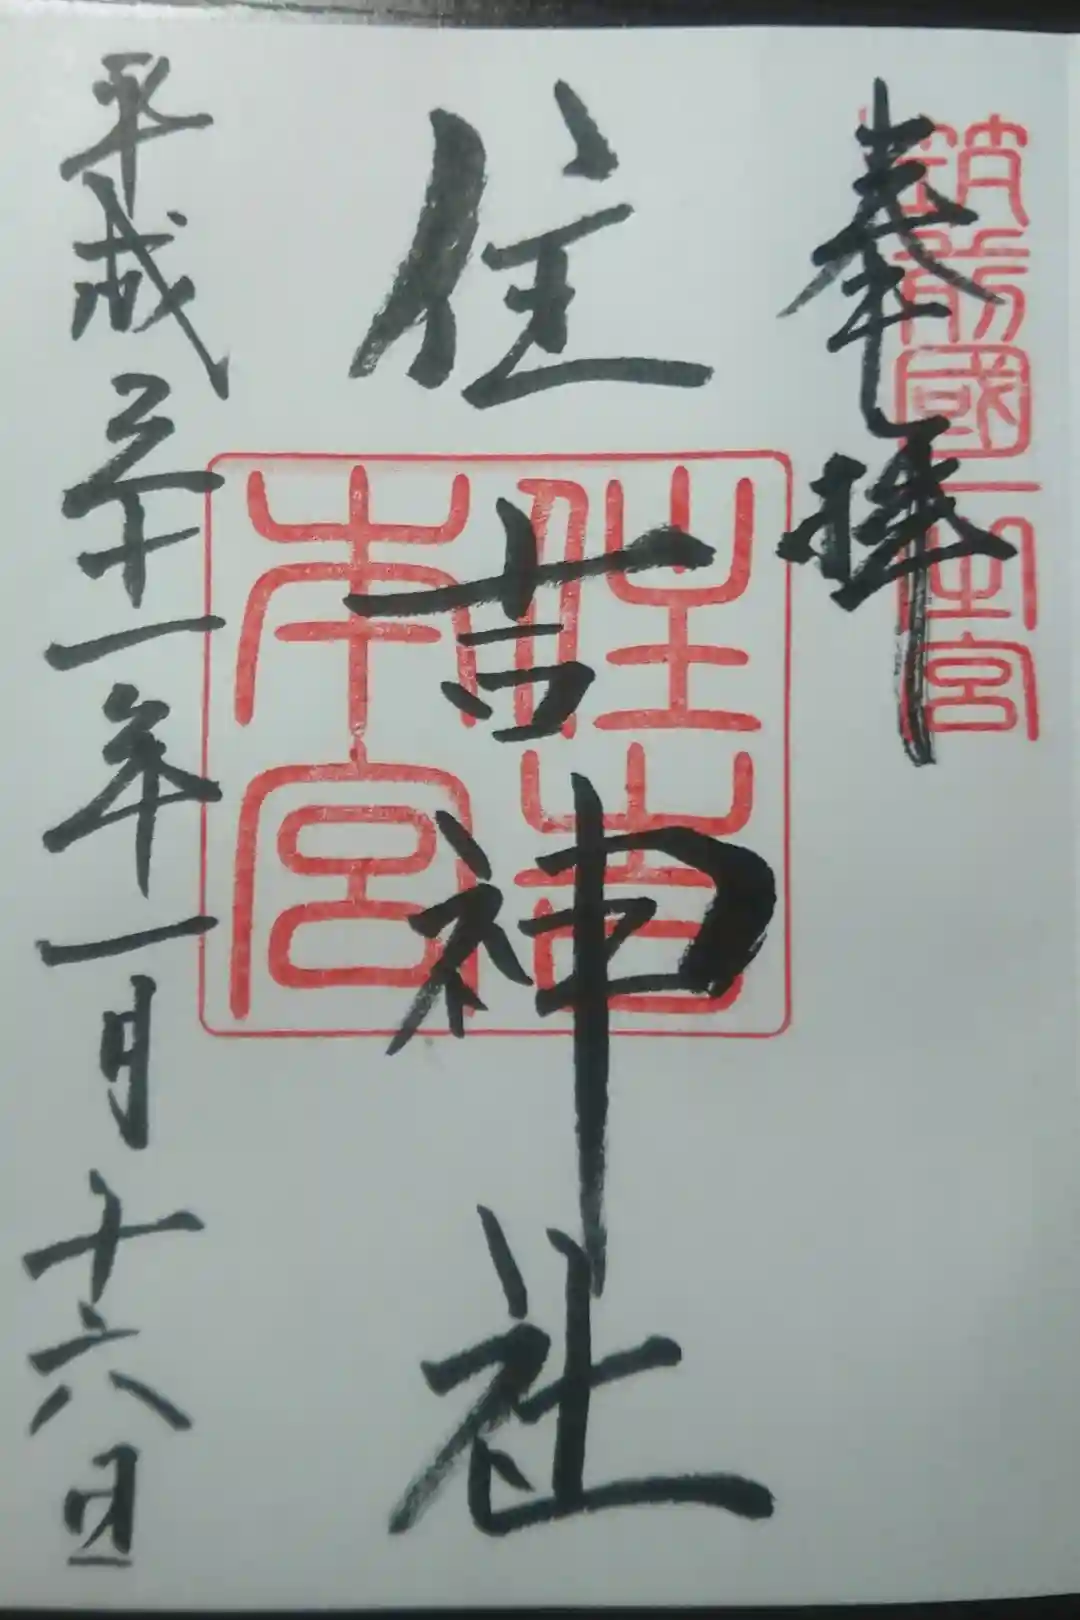 奉拝
筑前國一之宮
住吉神社
住吉本宮
平成三十一年一月十六日